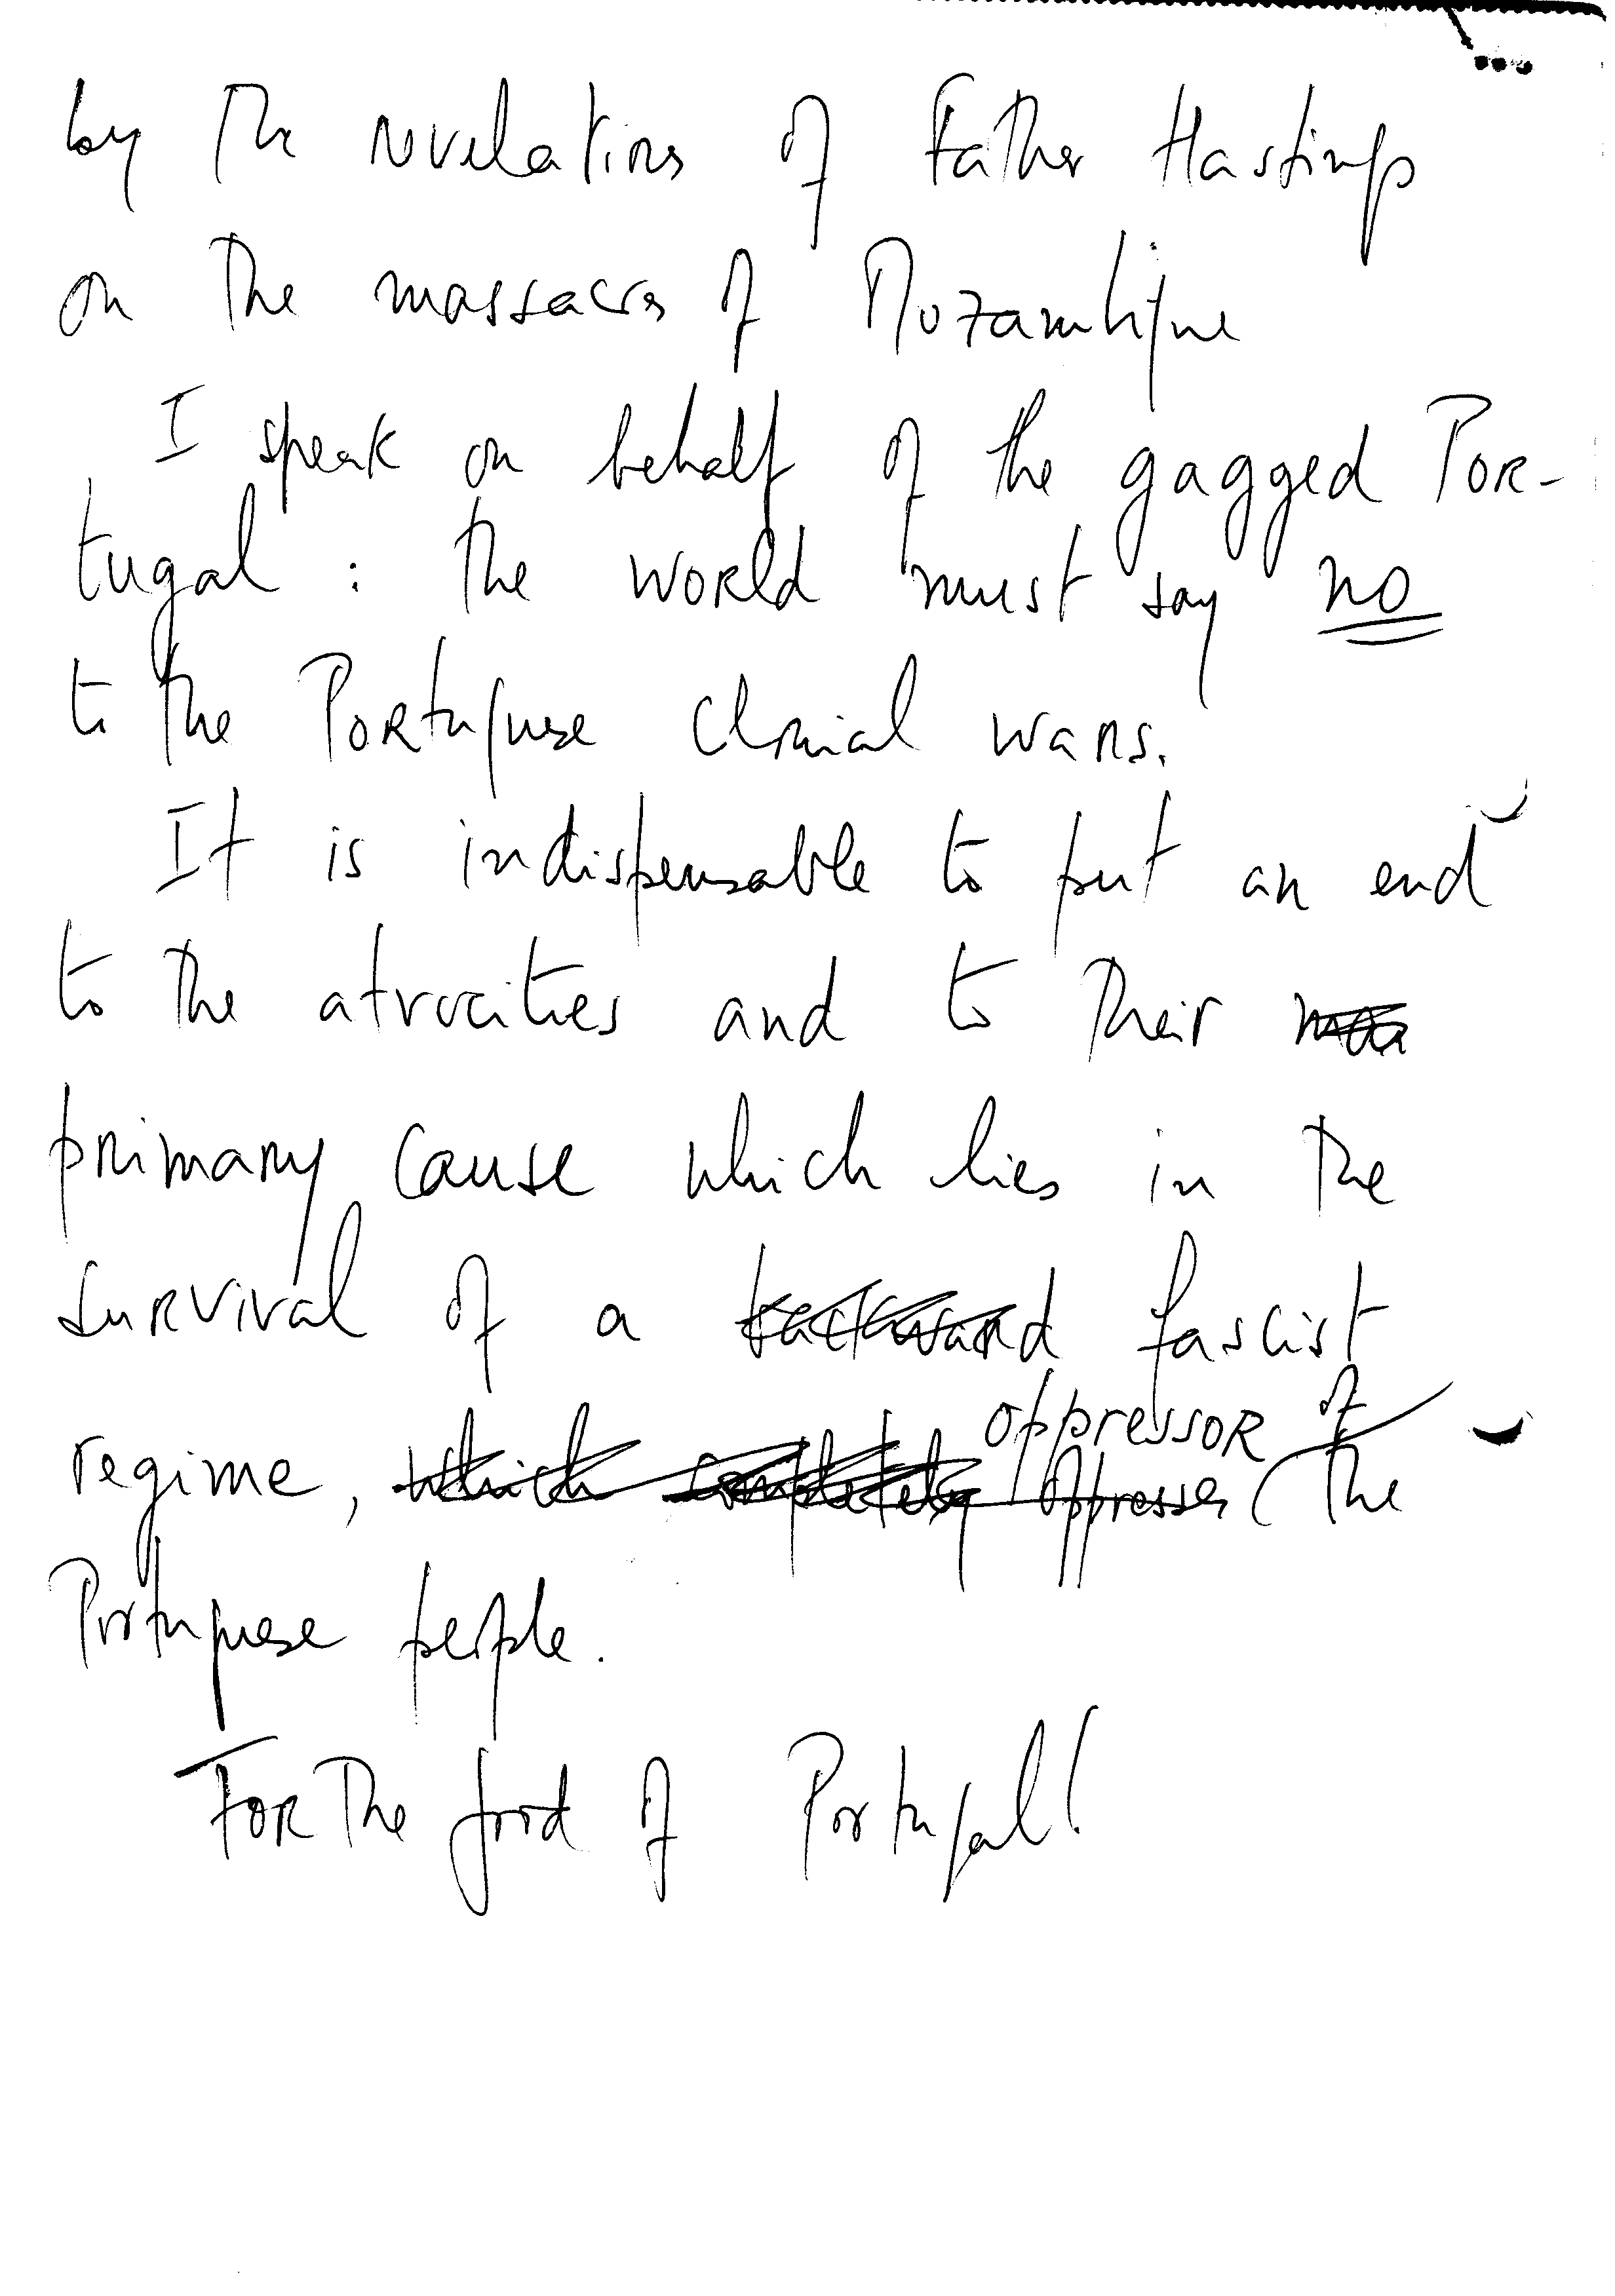 ...
by the revelations of Father Hastings
on the massacres of Mozambique
I speak on behalf of the gagged Por-
tugal : the world must say no
to the Portuguese colonial wars.
It is indispensable to put an end
to the atrocities and to their
primary cause which lies in the
survival of a backward fascist
oppressor of
regime, which completely oppresses the
Portuguese people.
For the good of Portugal!